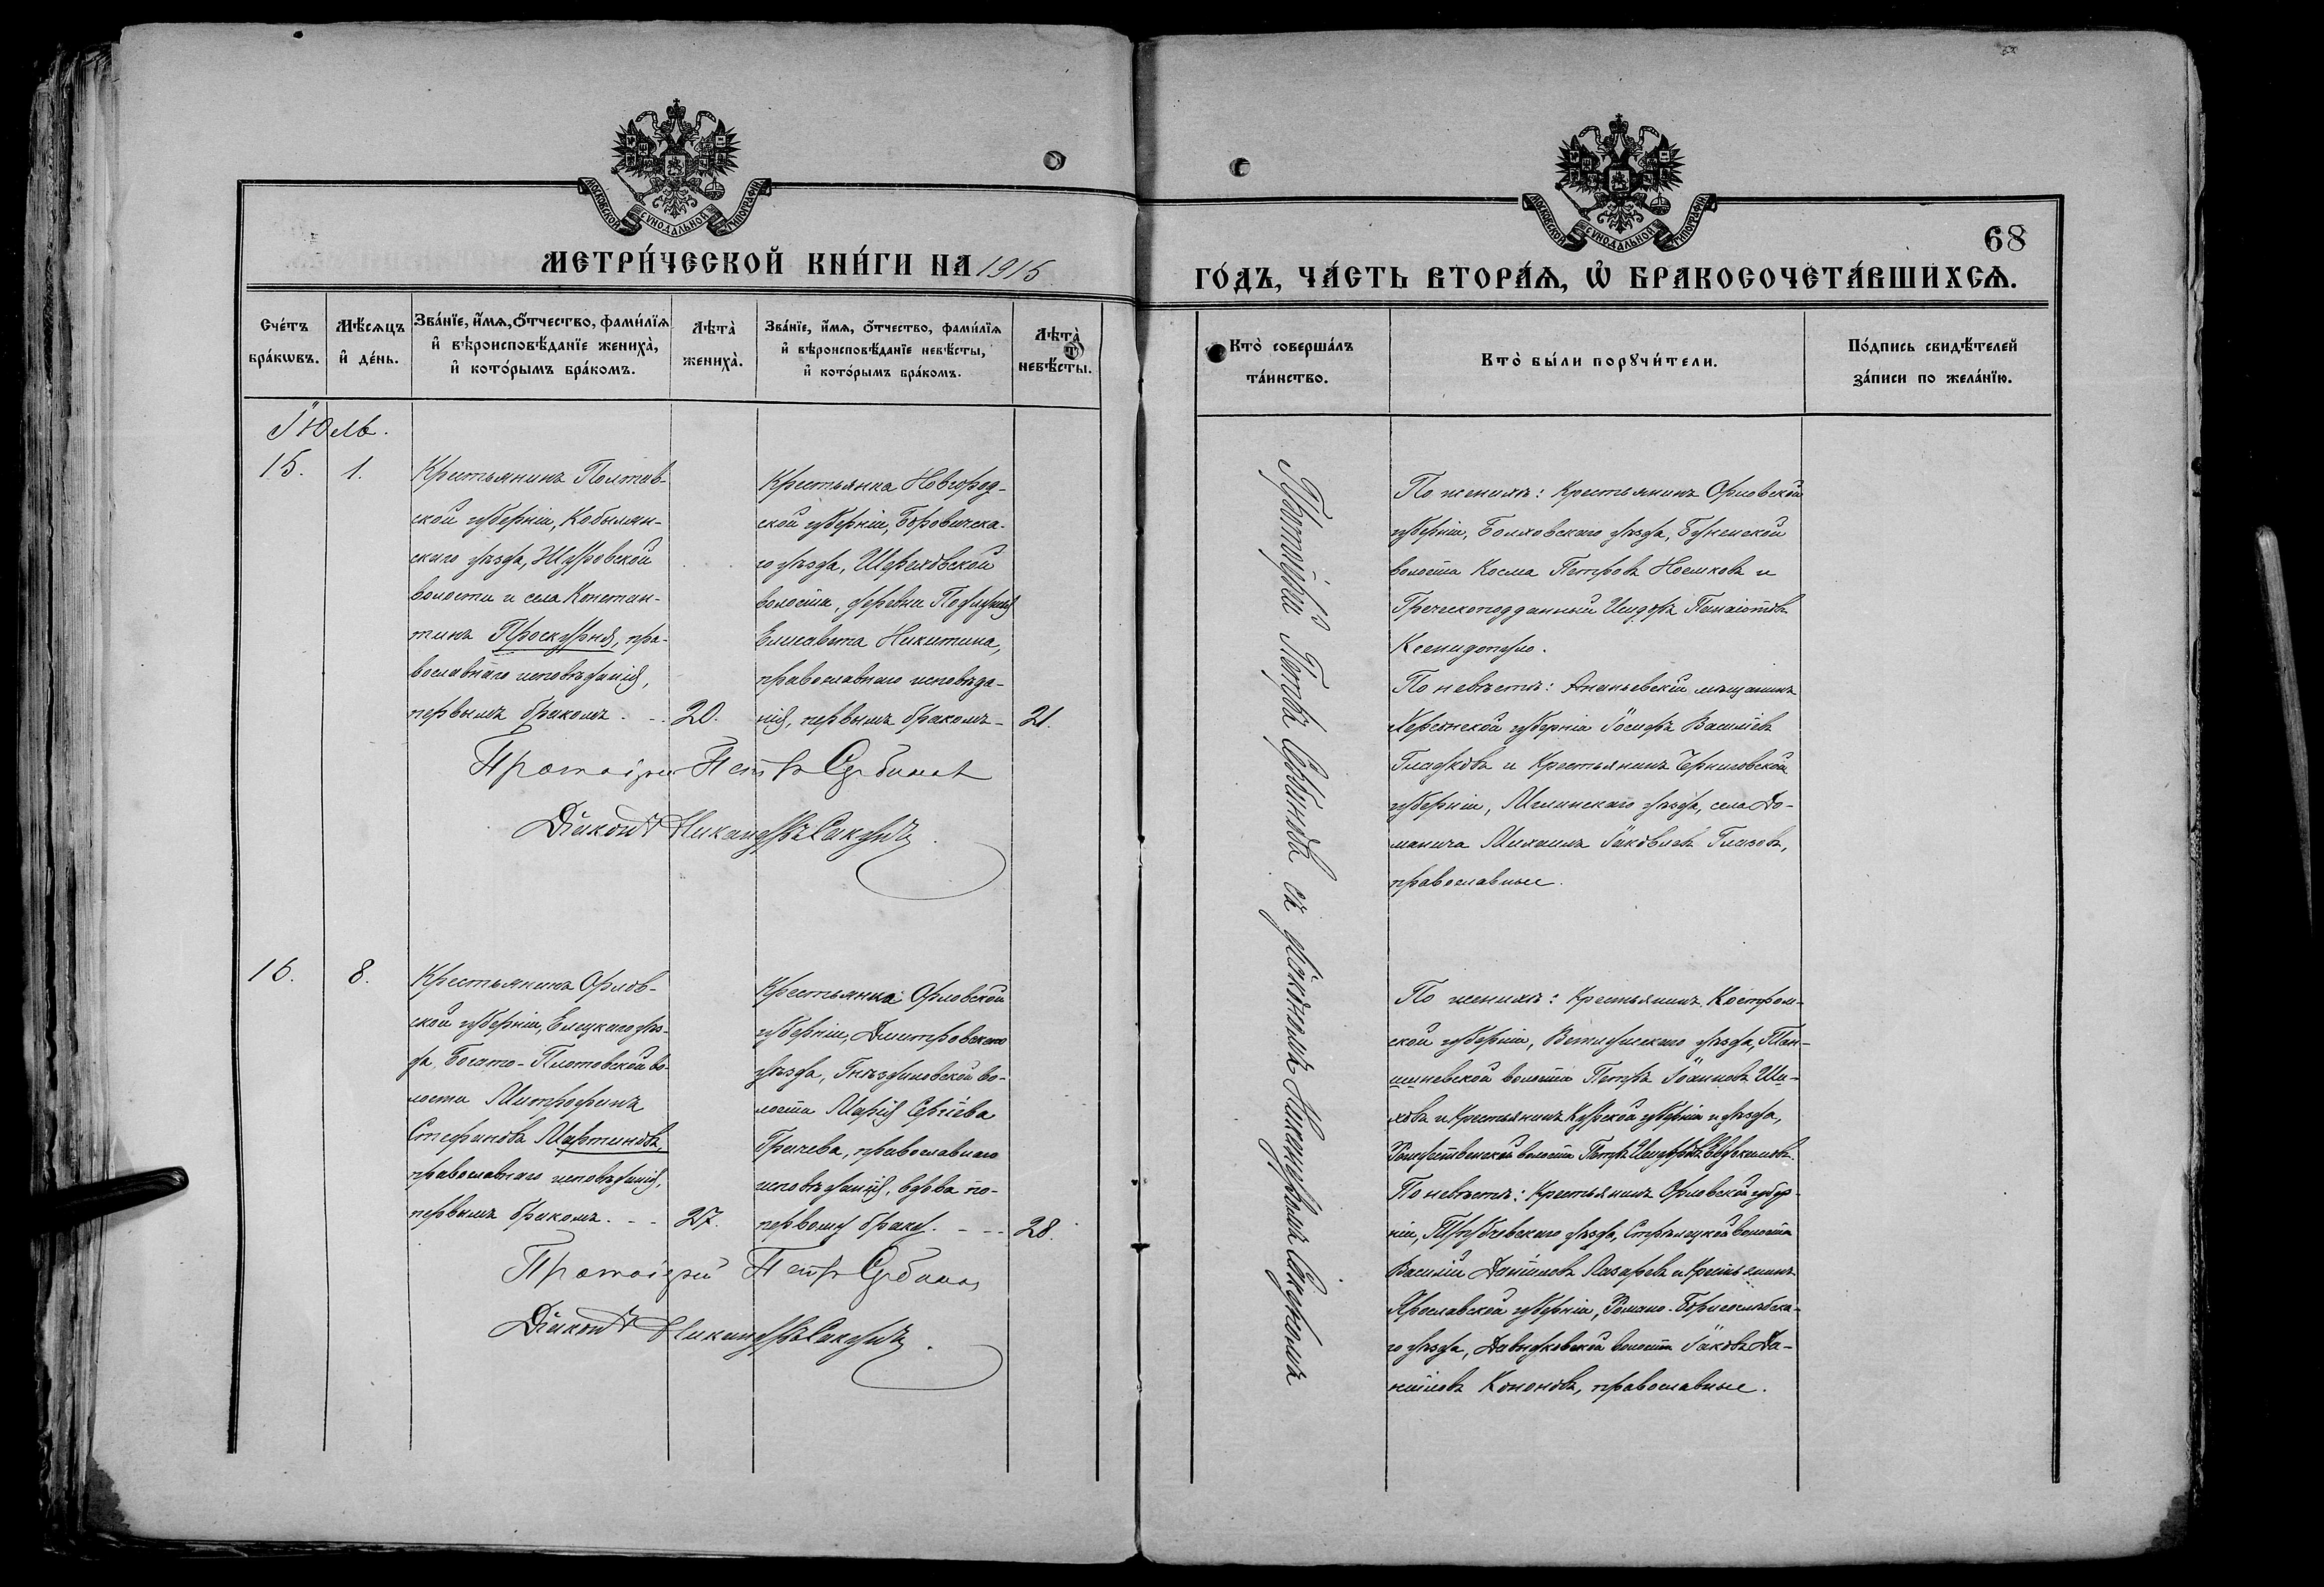 МОСКОВСКОЙ СѴНОДАЛЬНОЙ ТИПОГРАФІИ
МЕТРИ́ЧЕСКОЙ КНИ́ГИ НА 1915
Сче́тъ бра́кωвъ.
Мѣ́сѧцъ и҆ де́нь.
Зва́нїе, и҆́мѧ, ѻ҆́тчество, фами́лїѧ и҆ вѣроисповѣ́данїе жениха̀, и҆ кото́рымъ бра́комъ.
Лѣта̀ жениха̀.
Зва́нїе, и҆́мѧ, ѻ҆́тчество, фами́лїѧ и҆ вѣроисповѣ́данїе невѣ́сты, и҆ кото́рымъ бра́комъ.
Лѣта̀ невѣ́сты.
Іюль.
15.
1.
Крестьянинъ Полтав-
ской губерніи, Кобыляк-
скаго уѣзда,
волости и села Констан-
тинъ Проскурня, пра-
вославнаго исповѣданія,
первымъ бракомъ.
20.
Крестьянка Новгород-
ской губерніи, Боровичска-
го уѣзда, Шереховской
волости, деревни
Елисавета Никитина,
православнаго исповѣда-
нія, первымъ бракомъ
21.
Протоіерей Петръ Сербиновъ
Діаконъ Никандръ Сакунъ.
16.
8.
Крестьянинъ Орлов-
ской губерніи, Елецкаго уѣз-
да, Богато-Плотовской во-
лости Митрофанъ
Стефановъ Мартиновъ,
православнаго исповѣданія,
первымъ бракомъ.
27.
Крестьянка Орловской
губерніи, Дмитровскаго
уѣзда, Гнѣздиловской во-
лости Марія Сергіева
Грачева, православнаго
исповѣданія, вдова по-
первому браку.
28.
Протоіерей Петръ Сербиновъ
Діаконъ Никандръ Сакунъ.
МОСКОВСКОЙ СѴНОДАЛЬНОЙ ТИПОГРАФІИ
68
ГО́ДЪ, ЧА́СТЬ ВТОРА́Ѧ, Ѡ҆ БРАКОСОЧЕТА́ВШИХСѦ.
Кто̀ соверша́лъ та́инство.
Кто̀ бы́ли порꙋчи́тели.
По́дпись свидѣ́телей за́писи по жела́нїю.
Протоіерей Петръ Сербиновъ съ діакономъ Никандромъ Сакуномъ
По женихѣ: Крестьянинъ Орловской
губерніи, Болховскаго уѣзда,
волости Косма Петровъ Носиковъ и
Греческоподданный Исидоръ Панаіотовъ
Ксенидопуло.
По невѣстѣ: Ананьевскій мѣщанинъ
Херсонской губерніи Іосифъ Васильевъ
Гладковъ и Крестьянинъ Черниговской
губерніи, Мглинскаго уѣзда, села До-
манича Михаилъ Іаковлевъ Глазовъ,
православные.
По женихѣ: Крестьянинъ Костром-
ской губерніи, Ветлужскаго уѣзда,
волости Петръ Іоанновъ Ши-
ховъ и Крестьянинъ Курской губерніи и уѣзда,
Рождественской волости Петръ Евдокимовъ.
По невѣстѣ: Крестьянинъ Орловской губер-
ніи, Трубчевскаго уѣзда, Стрѣлецкой волости
Василій Даниловъ Лазаревъ и Крестьянинъ
Ярославской губерніи, Романо-Борисоглѣбска-
го уѣзда, Давыдковской волости Іаковъ Да-
ниловъ Кононовъ, православные.